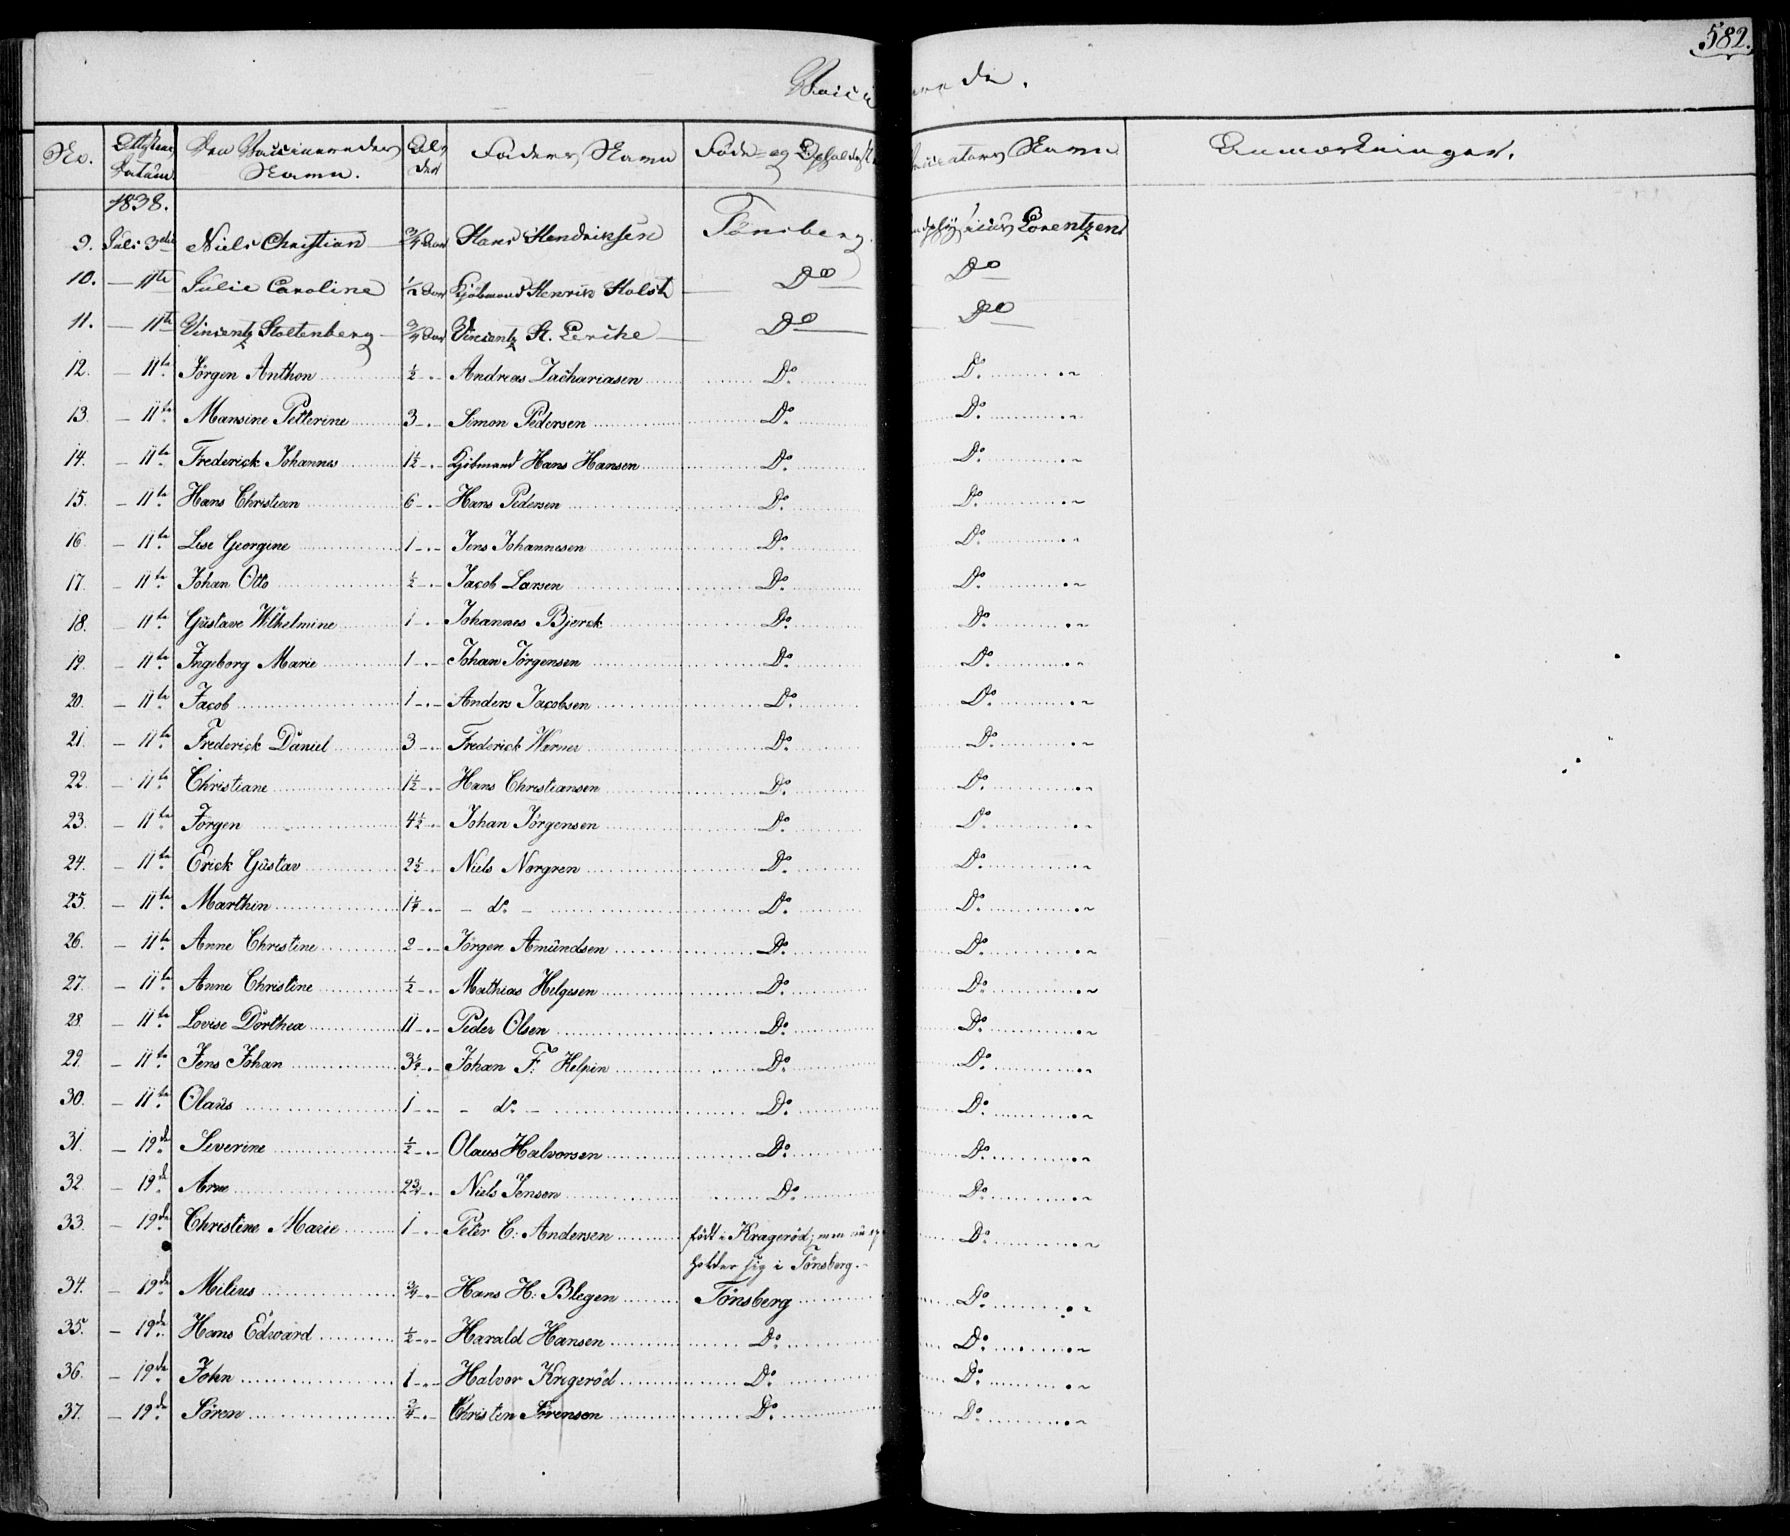 582.
No. Attestens Datum Den Vaccineredes Navn. Alder Faders Navn Føde- og Opholds Navn Anmærkninger.
1838.
9. Juli 3die Niels Christian 3/4 Aar Hans Hendriksen Tønsberg Lorentzen
10. — 11te Julie Caroline 1/2 Aar Kjøbmand Henrik Holst Do Do
11. — 11te Vincentz Stoltenberg 3/4 Aar Vincentz St. Lerche Do Do
12. — 11te Jørgen Anthon 1/2 -.- Andreas Zachariasen Do Do
13. — 11te Mansine Petterine 3 -.- Simon Pedersen Do Do
14. — 11te Frederick Johannes 1½ -.- Kjöbmand Hans Hansen Do Do
15. — 11te Hans Christian 6 -.- Hans Pedersen Do Do
16. — 11te Lise Georgine 1 -.- Jens Johannesen Do Do
17. — 11te Johan Otto ½ -.- Jacob Larsen Do Do
18. — 11te Gustave Wilhelmine 1 -.- Johannes Bjerck Do Do
19. — 11te Ingeborg Marie 1 -.- Johan Jörgensen Do Do
20. — 11te Jacob 1 -.- Anders Jacobsen Do Do
21. — 11te Frederick Daniel 3 -.- Frederick Werner Do Do
22. — 11te Christiane 1½ -.- Hans Christiansen Do Do
23. — 11te Jörgen 4½ -.- Johan Jörgensen Do Do
24. — 11te Erick Gustav 2½ -.- Niels Norgren Do Do
25. — 11te Marthin 1¼ -.- - do - Do Do
26. — 11te Anne Christine 2 -.- Jörgen Amundsen Do Do
27. — 11te Anne Christine ½ -.- Mathias Helgesen Do Do
28. — 11te Lovise Dorthea 11 -.- Peder Olsen Do Do
29. — 11te Jens Johan 3¼ -.- Johan F. Do Do
30. — 11te Olaus 1 -.- - do - Do Do
31. — 19de Severine ½ -.- Olaus Halvorsen Do Do
32. — 19de Arne 2¾ -.- Niels Jensen Do Do
33. — 19de Christine Marie 1 -.- Peter C. Andersen födt i Kragerød; men nu op Do
holder sig i Tønsberg.
34. — 19de Milius ¾ -.- Hans H. Blegen Tönsberg Do
35. — 19de Hans Edward ½ -.- Harald Hansen Do Do
36. — 19de John 1 -.- Halvor Krigeröd Do Do
37. — 19de Sören ¾ -.- Christen Sörensen Do Do